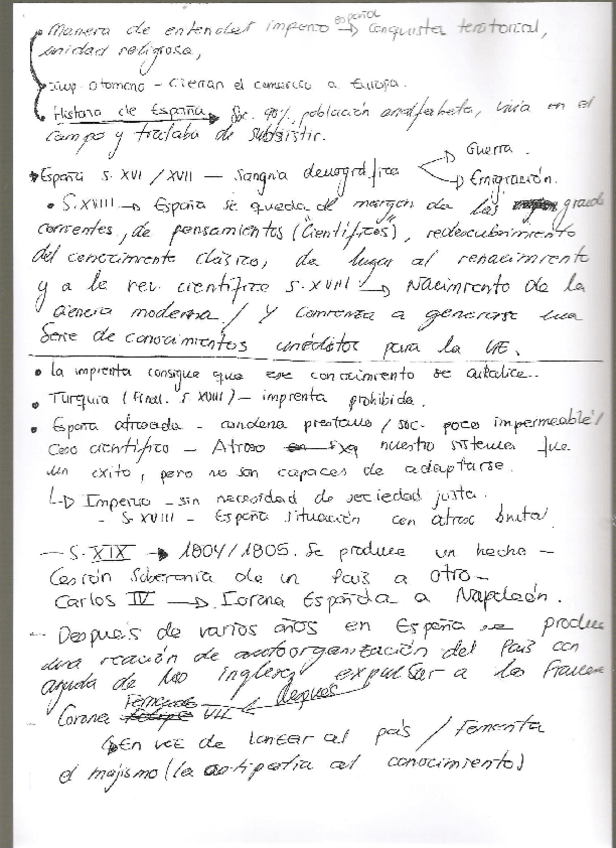 Manera de entender imperio español → conquista territorial,
unidad religiosa,
Imp. otomano - cierran el comercio a Europa.
Historia de España → Soc. 90% población analfabeta, vivía en el
campo y trataba de subsistir.
España S. XVI / XVII — Sangria demográfica → Guerra.
→ Emigración.
• S. XVIII → España se queda de margen de las grande
corrientes, de pensamientos ("científicos"), redescubrimiento
del conocimiento clásico, da lugar al renacimiento
y a le rev. científica S. XVII → Nacimiento de la
ciencia moderna / Y comienza a generarse una
Serie de conocimientos inéditos para la UE.
• la imprenta consigue que ese conocimiento se
• Turquía (final. S XVIII) — imprenta prohibida.
• España atrasada - condena prestamo / soc. poco impermeable /
Caso científico — Atraso nuestro sistema fue
un éxito, pero no son capaces de adaptarse.
↳ Imperio - sin necesidad de sociedad justa.
- S. XVIII - España situación con atraso brutal
— S. XIX → 1804/1805. Se produce un hecho —
Cesión Soberanía de un País a otro —
Carlos IV → Corona Española a Napoleón.
- Después de varios años en España se produce
una reación de autoorganización del País con
ayuda de los ingleses expulsar a los Franceses
- Corona Fernando VII ← después
↳ En vez de lanzar al país / Fomenta
el majismo (la antipatia al conocimiento)